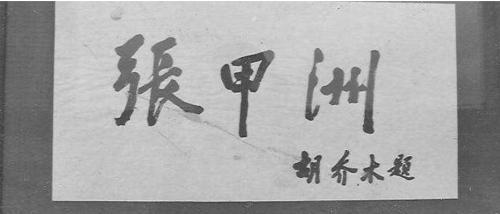 張甲洲
胡乔木題